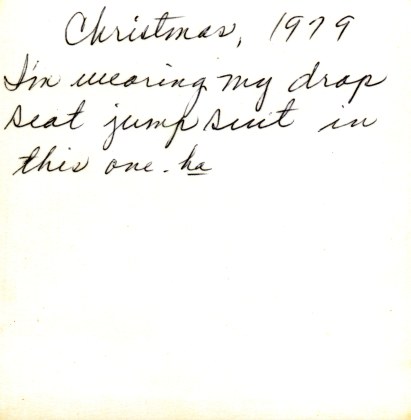 Christmas, 1979
I'm wearing my drop
seat jump suit in
this one. ha